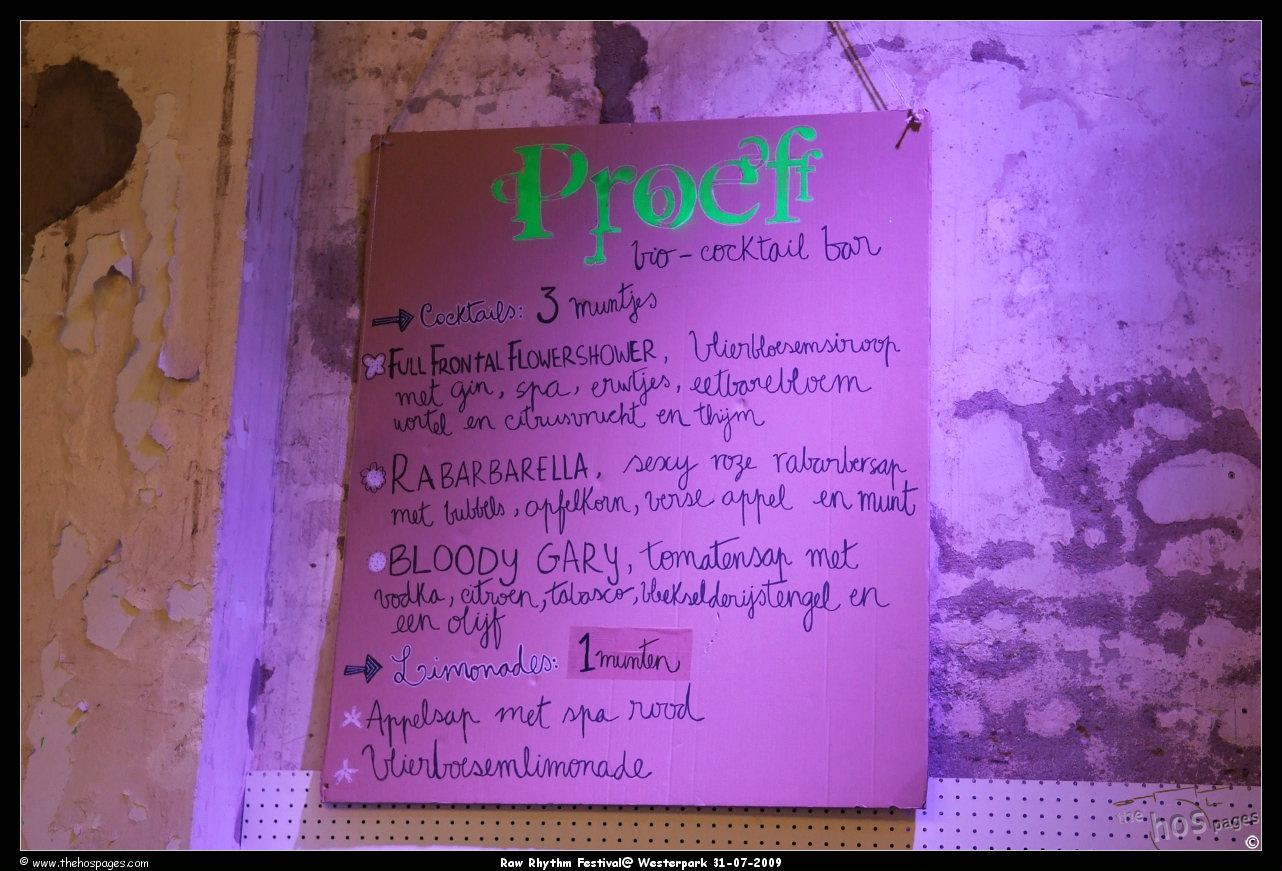 Proeff
bio-cocktail bar
Cocktails: 3 muntjes
FULL FRONTAL FLOWERSHOWER, Vlierbloesemsiroop
met gin, spa, erwtjes, eetbarebloem
wortel en citrusvrucht en thijm
RABARBARELLA, sexy roze rabarbersap
met bubbels, apfelkorn, verse appel en munt
BLOODY GARY, tomatensap met
vodka, citroen, tabasco, bleekselderijstengel en
een olijf
Limonades: 1 munten
Appelsap met spa rood
Vlierboesemlimonade
the hos pages
©
© www.thehospages.com
Raw Rhythm Festival@ Westerpark 31-07-2009